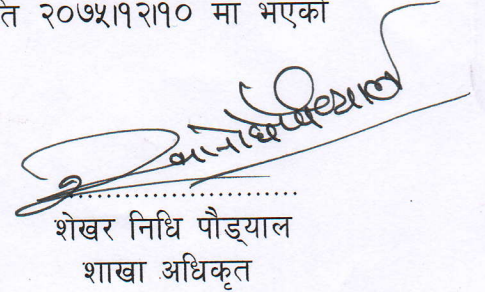 ति २०७५।१२।१० मा भएको
शेखर निधि पौड्याल
शाखा अधिकृत